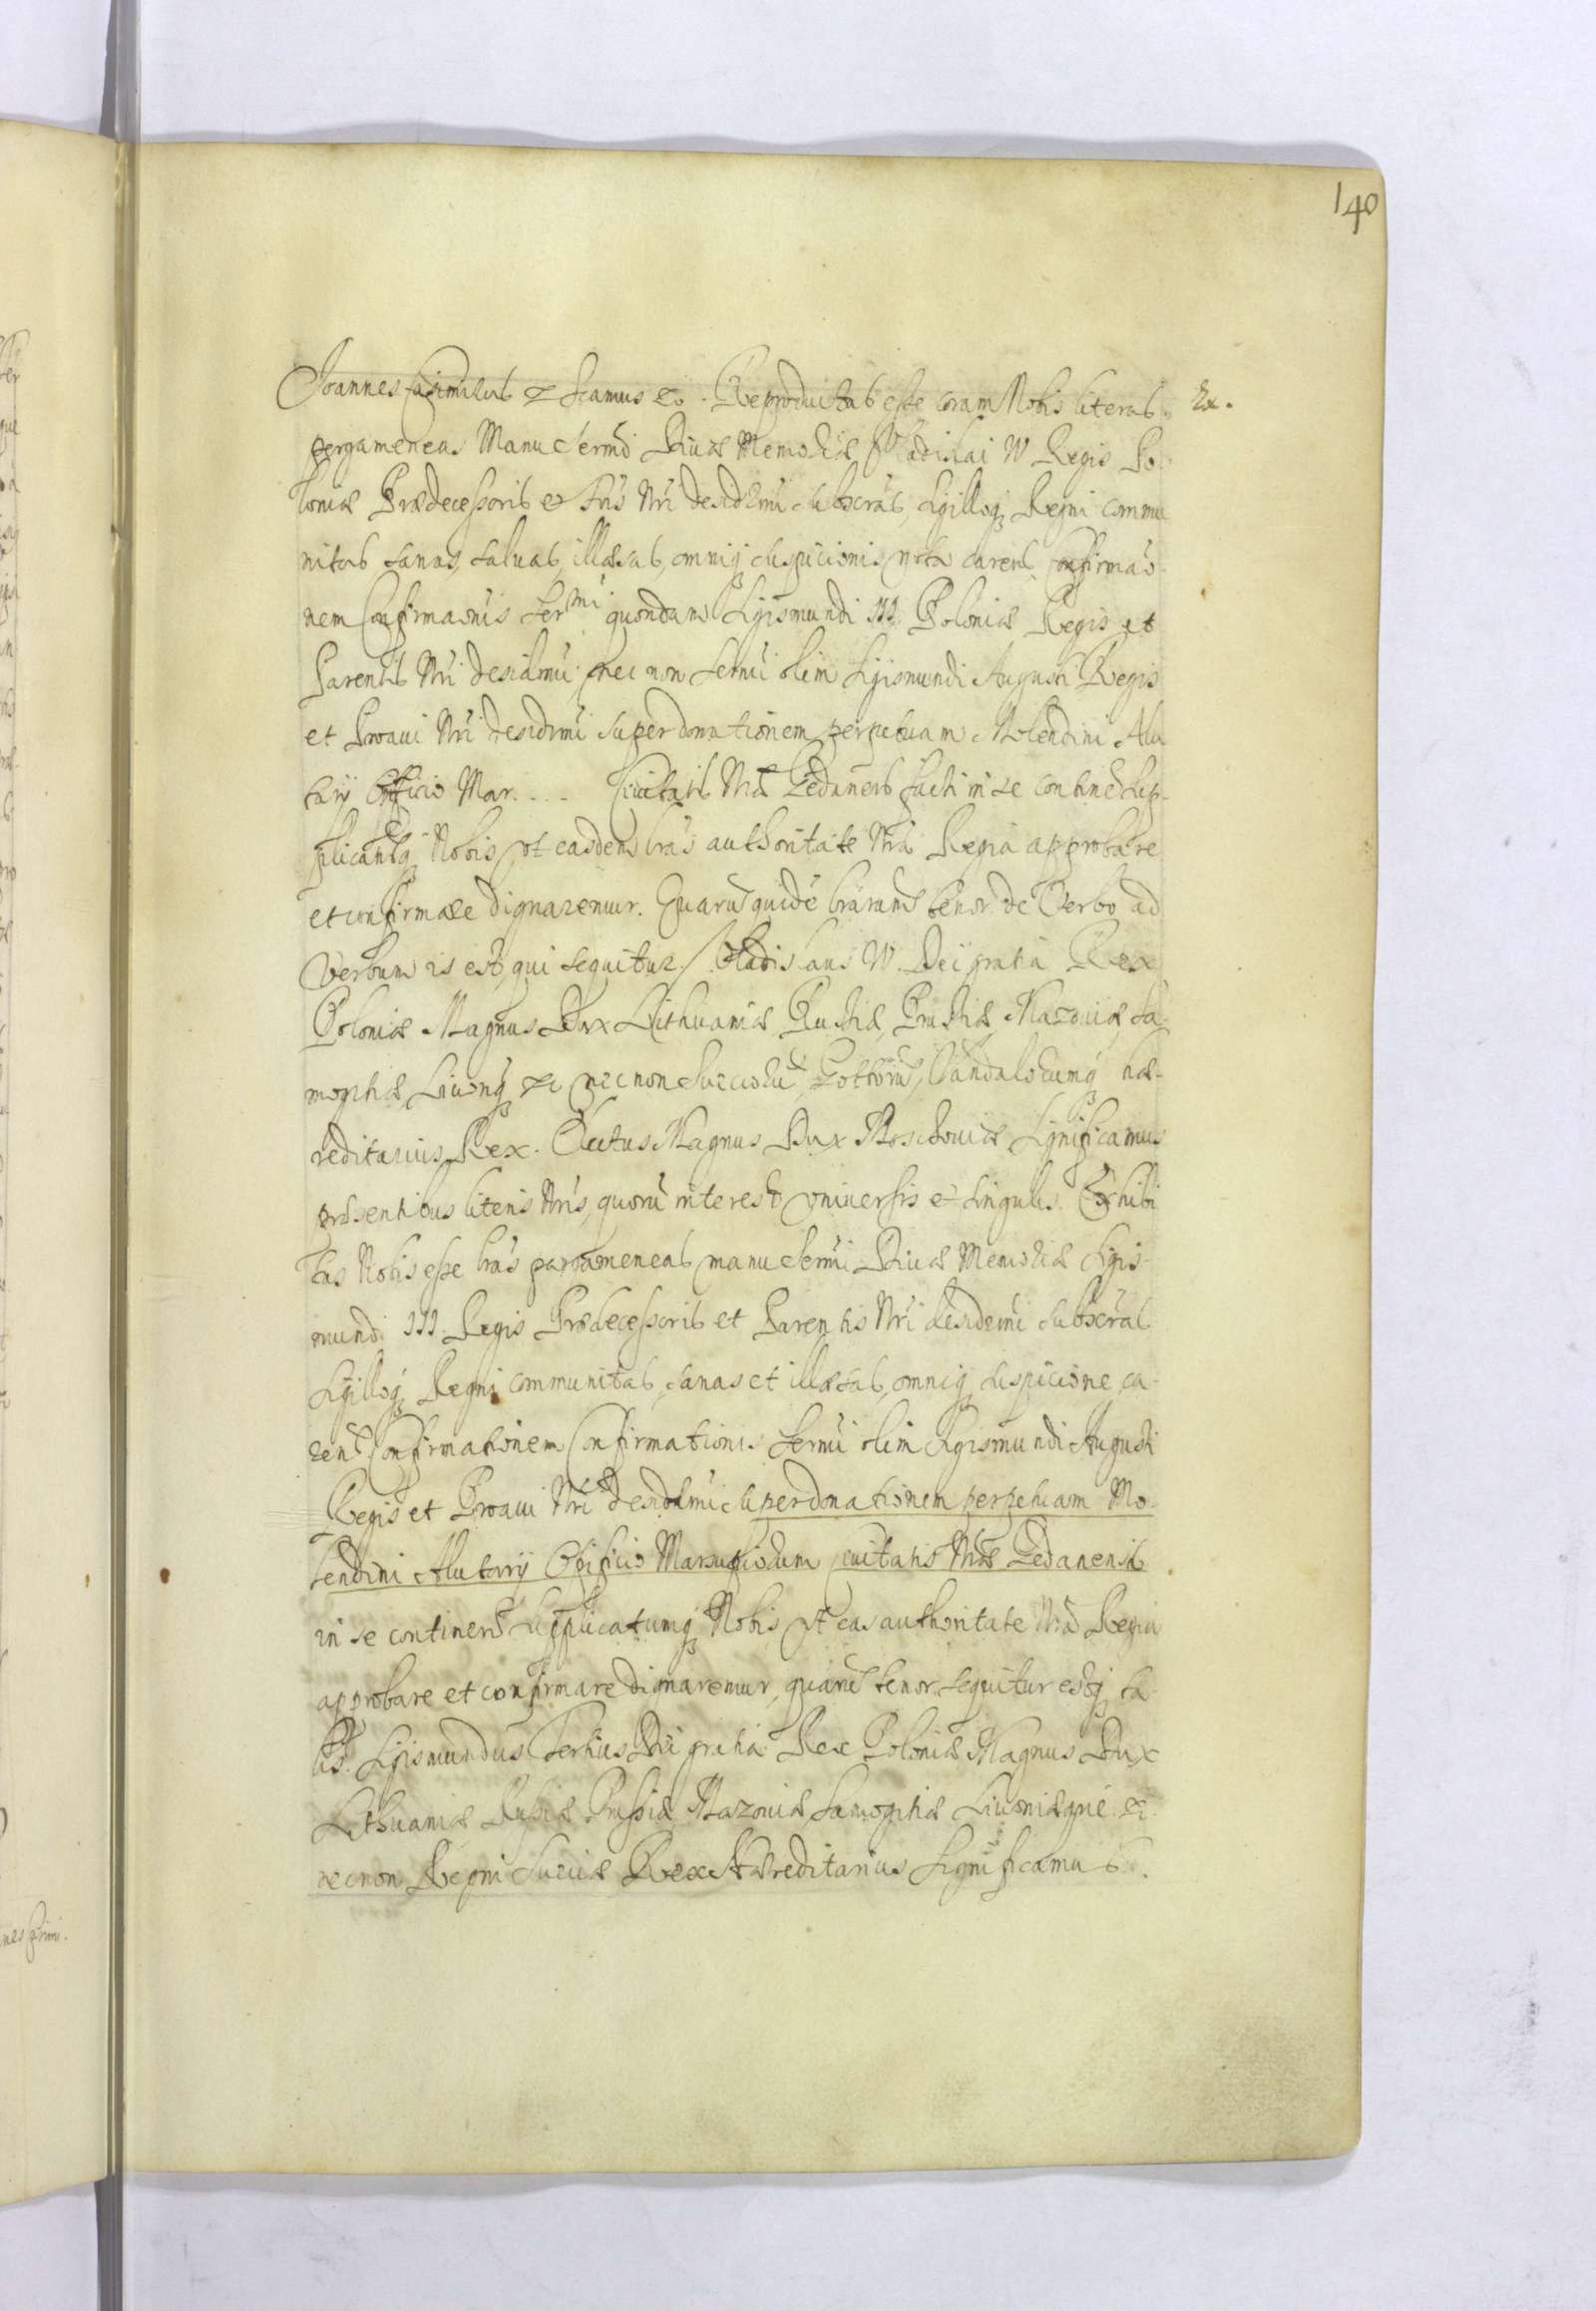 140
Joannes Casimirus &c Scamus &c. Reproductas esse coram Nobis literas
pergameneas Manu Sermi Divæ Memoriæ Vladislai IV Regis Po-
loniæ Prædecessoris et Fris Nri desidmi subscrās, Sigilloq Regni commu
nitas sanas, salvas, illæsas, omniq suspicionis nota carens, Confirmāō
nem Confirmāōnis Sermi quondam Sigismundi III Poloniæ Regis et
Parentis Nri desidmi nec non Sermi olim Sigismundi Augusti Regis
et Proavi Nri desidmi super donationem perpetuam Molendini Alu
tarij Opificio Mar.... Civitatis Nræ Gedanens facti in se contine Sup-
plicantq Nobis vt easdem lras authoritate Nra Regia approbare
et confirmare dignaremur. Quarū quidē lrarum tenor de Verbo ad
Verbum is est, qui sequitur. Vladislaus IV. Dei gratia Rex
Poloniæ Magnus Dux Lithuaniæ, Russiæ, Prussiæ, Mazoviæ, Sa-
mogitiæ, Livonq &c nec non Suecorū, Gottorū, Vandalorumq hæ-
reditarius Rex. Electus Magnus Dux Moschoviæ Significamus
præsentibus literis Nris, quorū interest vniversis et singulis. Exhibi
tas Nobis esse lras pargameneas manu Sermi Divæ Memoriæ Sigis-
mundi III. Regis Prædecessoris et Parentis Nri desidemi subscrās
Sigilloq Regni communitas, sanas et illæsas, omniq suspicione ca-
rens Confirmationem Confirmationis Sermi olim Sigismundi Augusti
Regis et Proavi Nri desidmi super donationem perpetuam Mo-
lendini Alutarij Opificio Marsupiorum Civitatis Nræ Gedanensis
in se continens Supplicatumq Nobis vt eas authoritate Nra Regia
approbare et confirmare dignaremur, quarū tenor sequitur estq ta
lis. Sigismundus Tertius Dei gratia Rex Poloniæ Magnus Dux
Lithuaniæ Russiæ Prussiæ Mazoviæ Samogitiæ Livoniæque &c
necnon Regni Sueciæ Rex Hæreditarius Significamus.